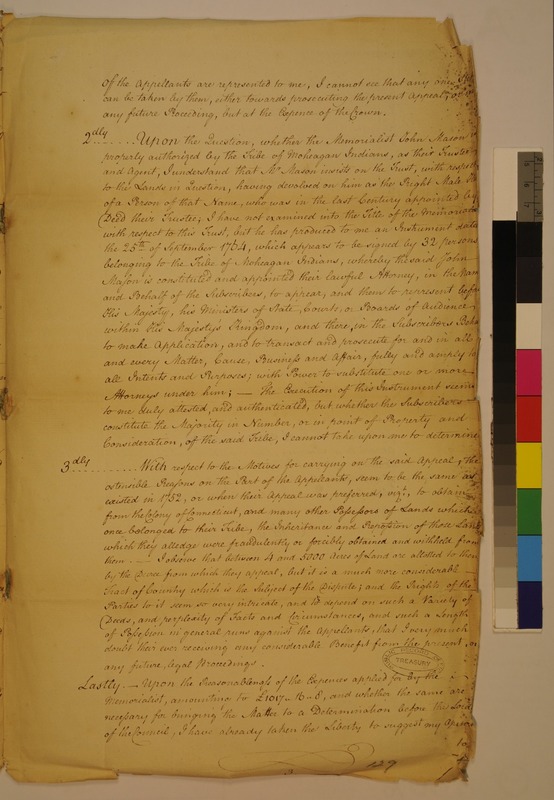 of the Appellants are represented to me, I cannot see that any
can be taken by them, either towards prosecuting the present Appeal,
any future Proceeding, but at the Expence of the Crown.
2dly ....... Upon the Question, whether the Memorialist John Mason is
properly authorized by the Tribe of Moheagan Indians, as their Trustee
and Agent, I understand that Mr. Mason insists on the Trust, with respect
to the Lands in Question, having devolved on him as the Right Male
of a Person of that Name, who was in the last Century appointed by
Deed their Trustee; I have not examined into the Title of the Memorialist
with respect to this Trust, but he has produced to me an Instrument dated
the 25th of September 1764, which appears to be signed by 32 persons
belonging to the Tribe of Moheagan Indians, whereby the said John
Mason is constituted and appointed their lawful Attorney, in the Name
and Behalf of the Subscribers, to appear, and them to represent before
His Majesty, his Ministers of State, Courts, or Boards of Audience
within His Majestys Kingdom, and there, in the Subscribers
to make Application, and to transact and prosecute for and in all
and every Matter, Cause, Business and Affair, fully and amply to
all Intents and Purposes; with Power to substitute one or more
Attorneys under him; — The Execution of this Instrument seems
to me duly attested, and authenticated, but whether the Subscribers
constitute the Majority in Number, or in point of Property and
Consideration, of the said Tribe, I cannot take upon me to determine
3dly ......... With respect to the Motives for carrying on the said Appeal, the
ostensible Reasons on the Part of the Appellants, seem to be the same as
existed in 1752, or when their Appeal was preferred, vizt., to obtain
from the Colony of Connecticut, and many other Possessors of Lands which
once belonged to their Tribe, the Inheritance and Possession of those Lands
which they alledge were fraudulently or forcibly obtained and withheld from
them. — I observe that between 4 and 5000 Acres of Land are allotted to them
by the Decree from which they appeal, but it is a much more considerable
Tract of Country which is the Subject of the Dispute; and the Rights of the
Parties to it seem so very intricate, and to depend on such a Variety of
Deeds, and perplexity of Facts and Circumstances, and such a Length
of Possession in general runs against the Appellants, that I very much
doubt their ever receiving any considerable Benefit from the present, or
any future, legal Proceedings.
Lastly. — Upon the Reasonableness of the Expences applied for by the
Memorialist, amounting to £1017–16–8, and whether the same are
necessary for bringing the Matter to a Determination before the Lords
of the Council, I have already taken the Liberty to suggest my
TREASURY
129